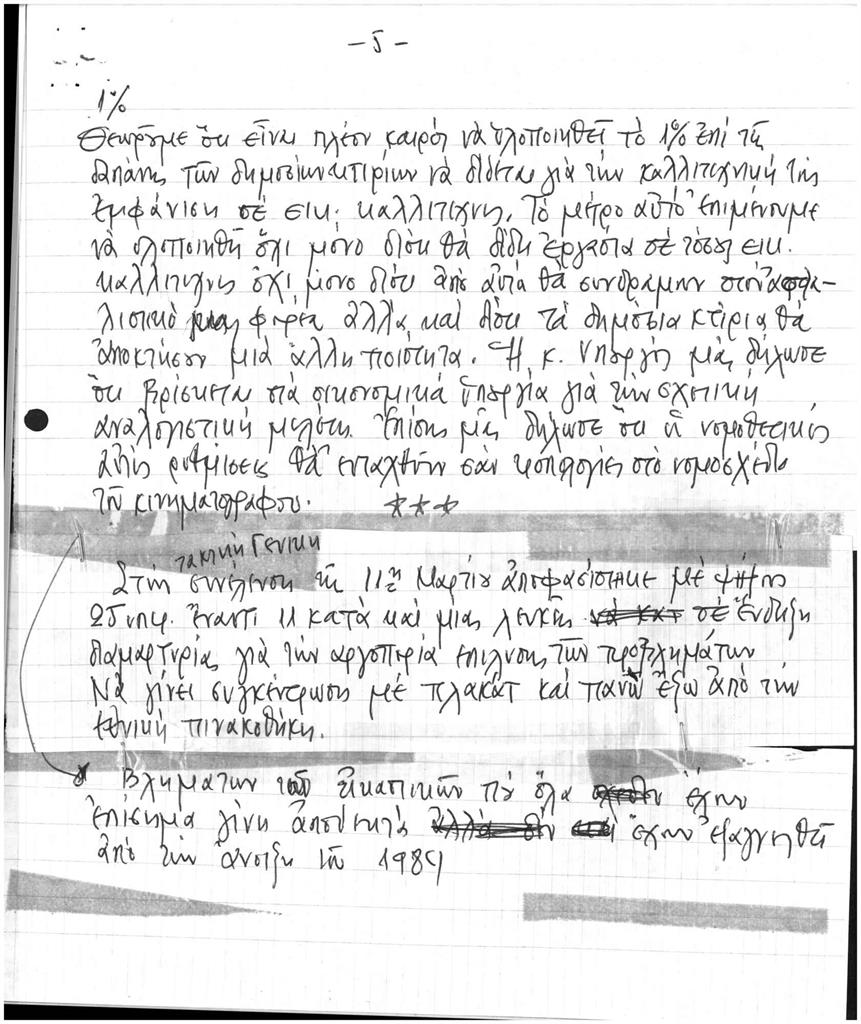 - 5 -
1%
Θεωρούμε ὅτι εἶναι πλέον καιρός νὰ ὑλοποιηθεῖ τὸ 1% ἐπί τῆς
δαπάνης τῶν δημοσίων κτιρίων νὰ δίδεται γιὰ τὴν καλλιτεχνική της
ἐμφάνιση σὲ εικ. καλλιτέχνες. Τὸ μέτρο αὐτό ἐπιμένουμε
νὰ υλοποιηθῆ ὄχι μόνο διότι θὰ δίδη ἐργασία σὲ τόσους εικ.
καλλιτέχνες ὄχι μόνο διότι ἀπό αὐτά θὰ συνδράμουν στὸν ἀσφα-
λιστικό μας φορέα ἀλλά καὶ διότι τὰ δημόσια κτίρια θὰ
ἀποκτήσουν μιά ἄλλη ποιότητα. Ἡ κ. Υπουργός μᾶς δήλωσε
ὅτι βρίσκεται στὰ οικονομικά Ὑπουργεία γιὰ τὴν σχετική
αναλογιστική μελέτη. Ἐπίσης μᾶς δήλωσε ὅτι οἱ νομοθετικές
αὐτές ρυθμίσεις θὰ ενταχθοῦν σὰν τροπολογίες στὸ νομοσχέδιο
τοῦ κινηματογράφου. ***
τακτική Γενική
Στὴν συνέλευση τῆς 11ης Μαρτίου ἀποφασίστηκε μὲ ψήφους
25 υπερ. ἔναντι 11 κατὰ καὶ μιας λευκῆς σὲ ἔνδειξη
διαμαρτυρίας γιὰ τὴν αργοπορία επιλυσης τῶν προβλημάτων
Νὰ γίνει συγκέντρωση μὲ πλακὰτ καὶ πανώ ἔξω ἀπὸ τὴν
Εθνική πινακοθήκη.
Βλημάτων τῶν εἰκαστικῶν ποὺ ὅλα ἔχουν
ἐπίσημα γίνη ἀποδεκτά ἔχουν ἐξαγγελθεῖ
ἀπὸ τὴν ἄνοιξη τοῦ 1989